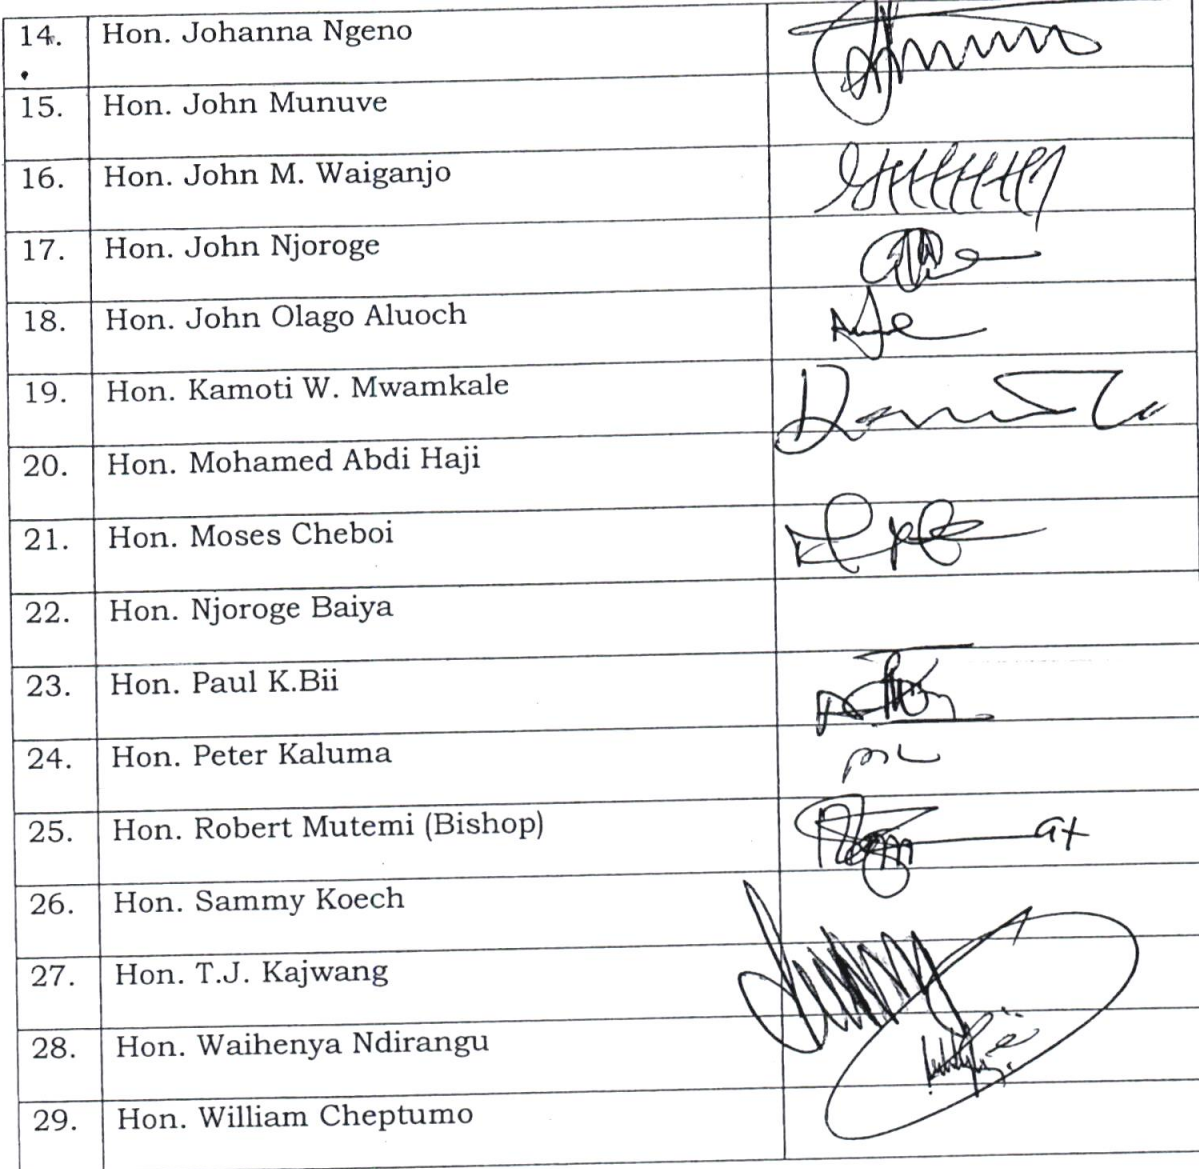 14. Hon. Johanna Ngeno
15. Hon. John Munuve
16. Hon. John M. Waiganjo
17. Hon. John Njoroge
18. Hon. John Olago Aluoch
19. Hon. Kamoti W. Mwamkale
20. Hon. Mohamed Abdi Haji
21. Hon. Moses Cheboi
22. Hon. Njoroge Baiya
23. Hon. Paul K.Bii
24. Hon. Peter Kaluma
25. Hon. Robert Mutemi (Bishop)
26. Hon. Sammy Koech
27. Hon. T.J. Kajwang
28. Hon. Waihenya Ndirangu
29. Hon. William Cheptumo